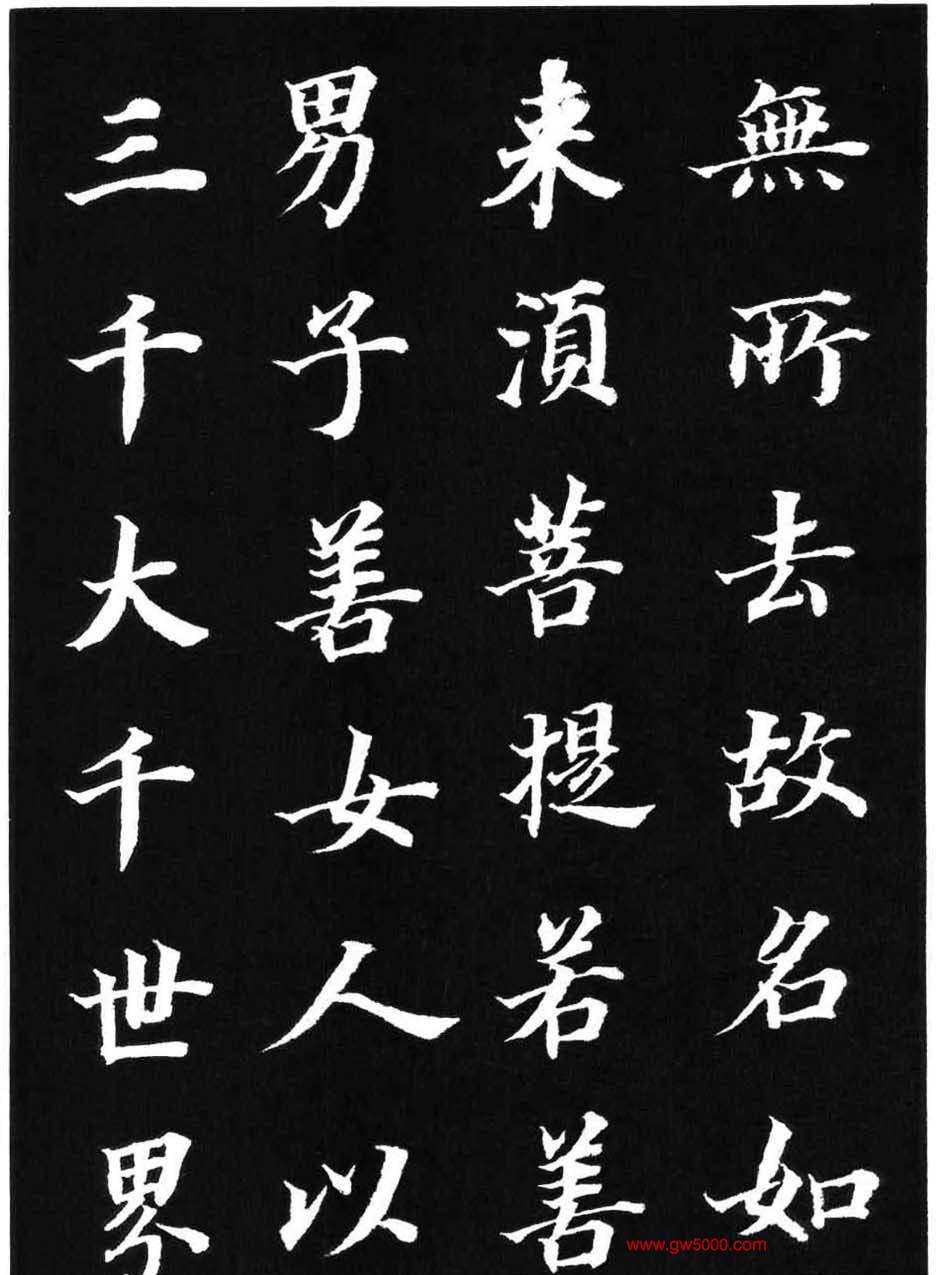 無所去故名如
来湏菩提若善
男子善女人以
三千大千世界
www.gw5000.com